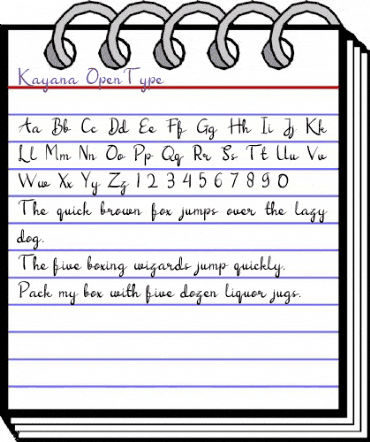 Kayana OpenType
Aa Bb Cc Dd Ee Ff Gg Hh Ii Jj Kk
Ll Mm Nn Oo Pp Qq Rr Ss Tt Uu Vv
Ww Xx Yy Zz 1 2 3 4 5 6 7 8 9 0
The quick brown fox jumps over the lazy
dog.
The five boxing wizards jump quickly.
Pack my box with five dozen liquor jugs.